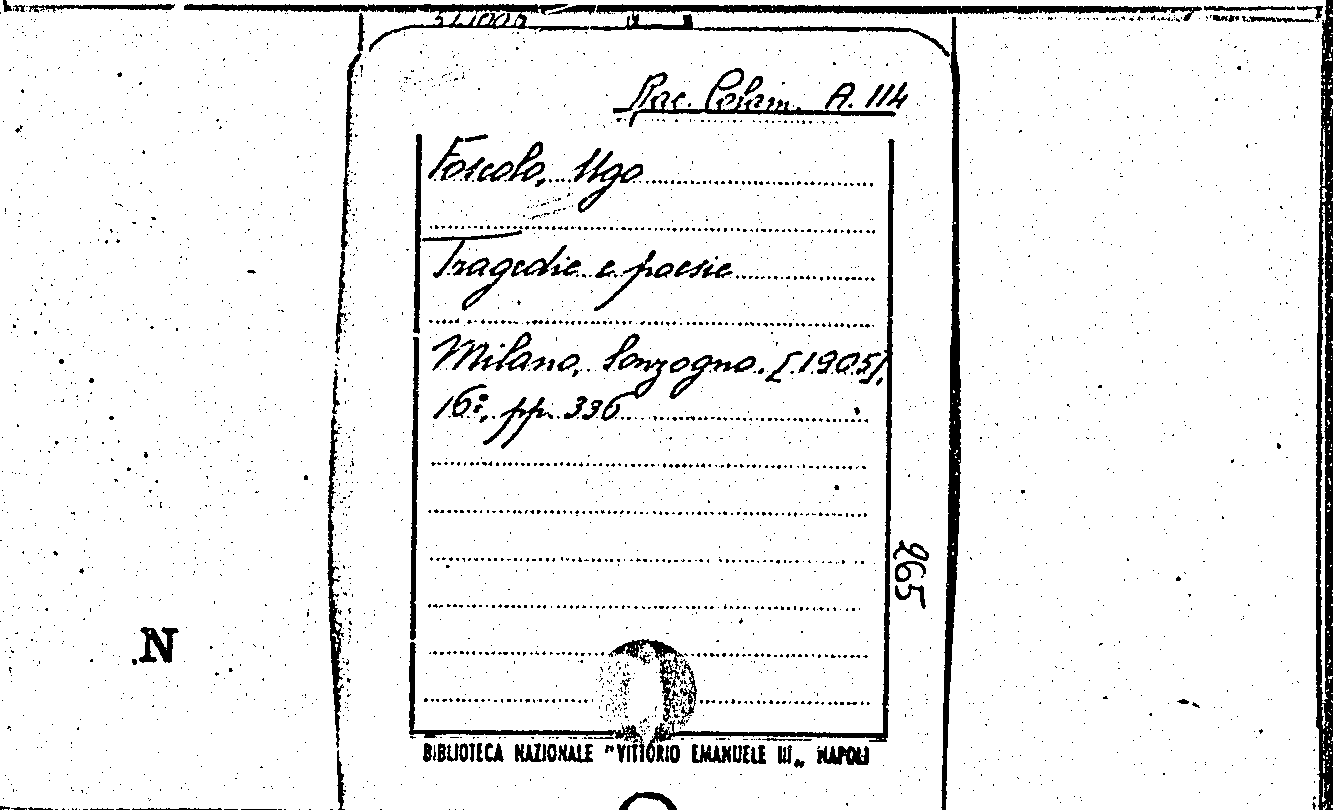 Rac. Polam. A. 114
Foscolo, Ugo
Tragedie e poesie
Milano, Sonzogno. [1905].
16º, pp. 336
265
N
BIBLIOTECA NAZIONALE "VITTORIO EMANUELE III„ NAPOLI